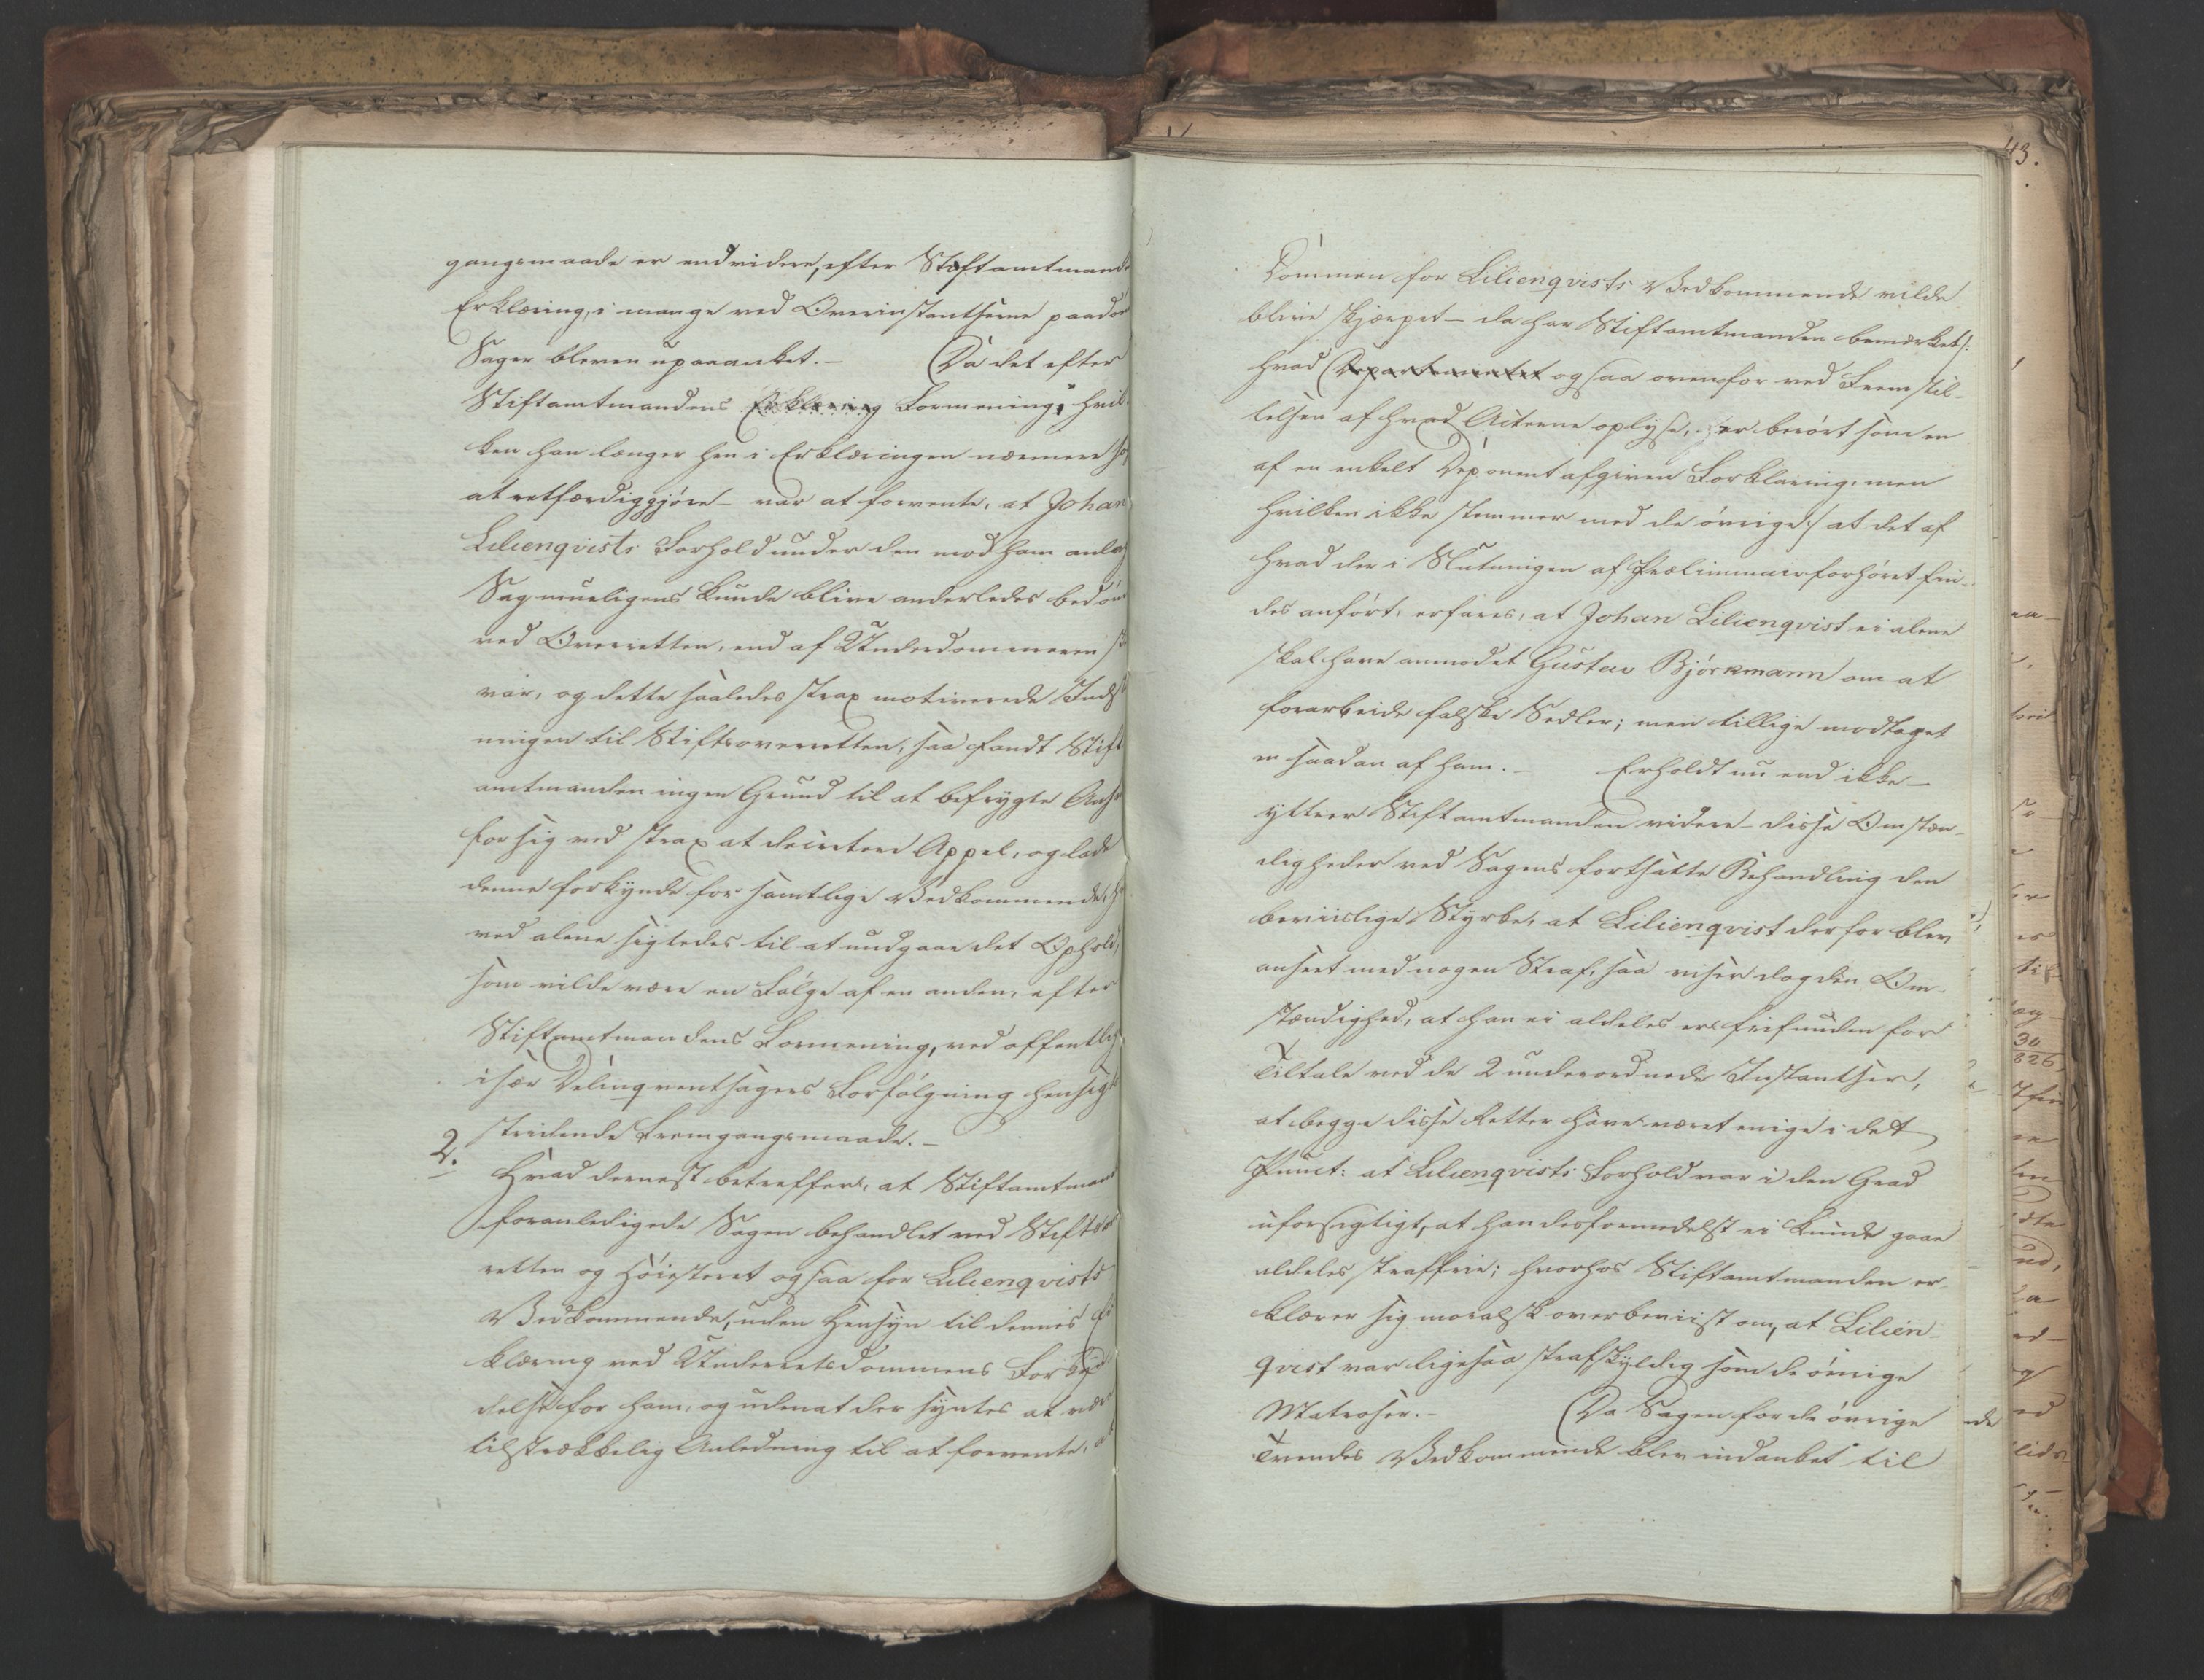 gangsmaade er endvidere, efter Stiftamtmand
Erklæring, i mange ved Overinstantserne paadø
Sager bleven upaaanket. — Da det efter
Stiftamtmandens Erklæring Formening, hvil
ken han længer hen i Erklæringen nærmere
at retfærdiggjöre — var at forvente, at Johan
Lilienqvists Forhold under den mod ham anla
Sag mueligens kunde blive anderledes bedöm
ved Overretten, end af Underdommeren
var, og dette saaledes strax motiverede Ind
ningen til Stiftsoverretten, saa fandt Stift
amtmanden ingen Grund til at befrygte Ans
for sig ved strax at decretere Appel, og lade
denne forkynde for samtlige Vedkommende,
ved alene sigtedes til at undgaae det Ophold,
som vilde være en Fölge af en anden, efter
Stiftamtmandens Formening, ved offentlig
især Delinqventsagers Forfölgning hensigt
stridende Fremgangsmaade. —
2.
Hvad dernæst betreffer, at Stiftamtmand
foranledigede Sagen behandlet ved Stifts
retten og Höiesteret ogsaa for Lilienqvists
Vedkommende, uden Hensyn til dennes Er
klæring ved Underretsdommens Forkyn
delse for ham, og uden at der syntes at være
tilstrækkelig Anledning til at forvente, at
43.
Dommen for Lilienqvists Vedkommende vilde
blive skjærpet — da har Stiftamtmanden bemærket /:
hvad Departementet ogsaa ovenfor ved Fremstil-
lelsen af hvad Acterne oplyse, er berört som en
af en enkelt Deponent afgiven Forklaring, men
hvilken ikke stemmer med de övrige :/ at det af
hvad der i Slutningen af Præliminairforhöret fin-
des anfört, erfares, at Johan Lilienqvist ei alene
skal have anmodet Gustav Björkmann om at
forarbeide falske Sedler; men tillige modtaget
en saadan af ham. — Erholdt nu end ikke —
yttrer Stiftamtmanden videre — disse Omstæn-
digheder ved Sagens fortsatte Behandling den
beviislige Styrke, at Lilienqvist derfor blev
anseet med nogen Straf, saa viser dog den Om-
stændighed, at han ei aldeles er frifunden for
Tiltale ved de 2 underordnede Instantser,
at begge disse Retter have været enige i det
Punct: at Lilienqvists Forhold var i den Grad
uforsigtigt, at han desformedelst ei kunde gaae
aldeles straffrie; hvorhos Stiftamtmanden er-
klærer sig moralsk overbeviist om, at Lilien-
qvist var ligesaa strafskyldig som de övrige
Matroser. — Da Sagen for de övrige
Trendes Vedkommende blev indanket til